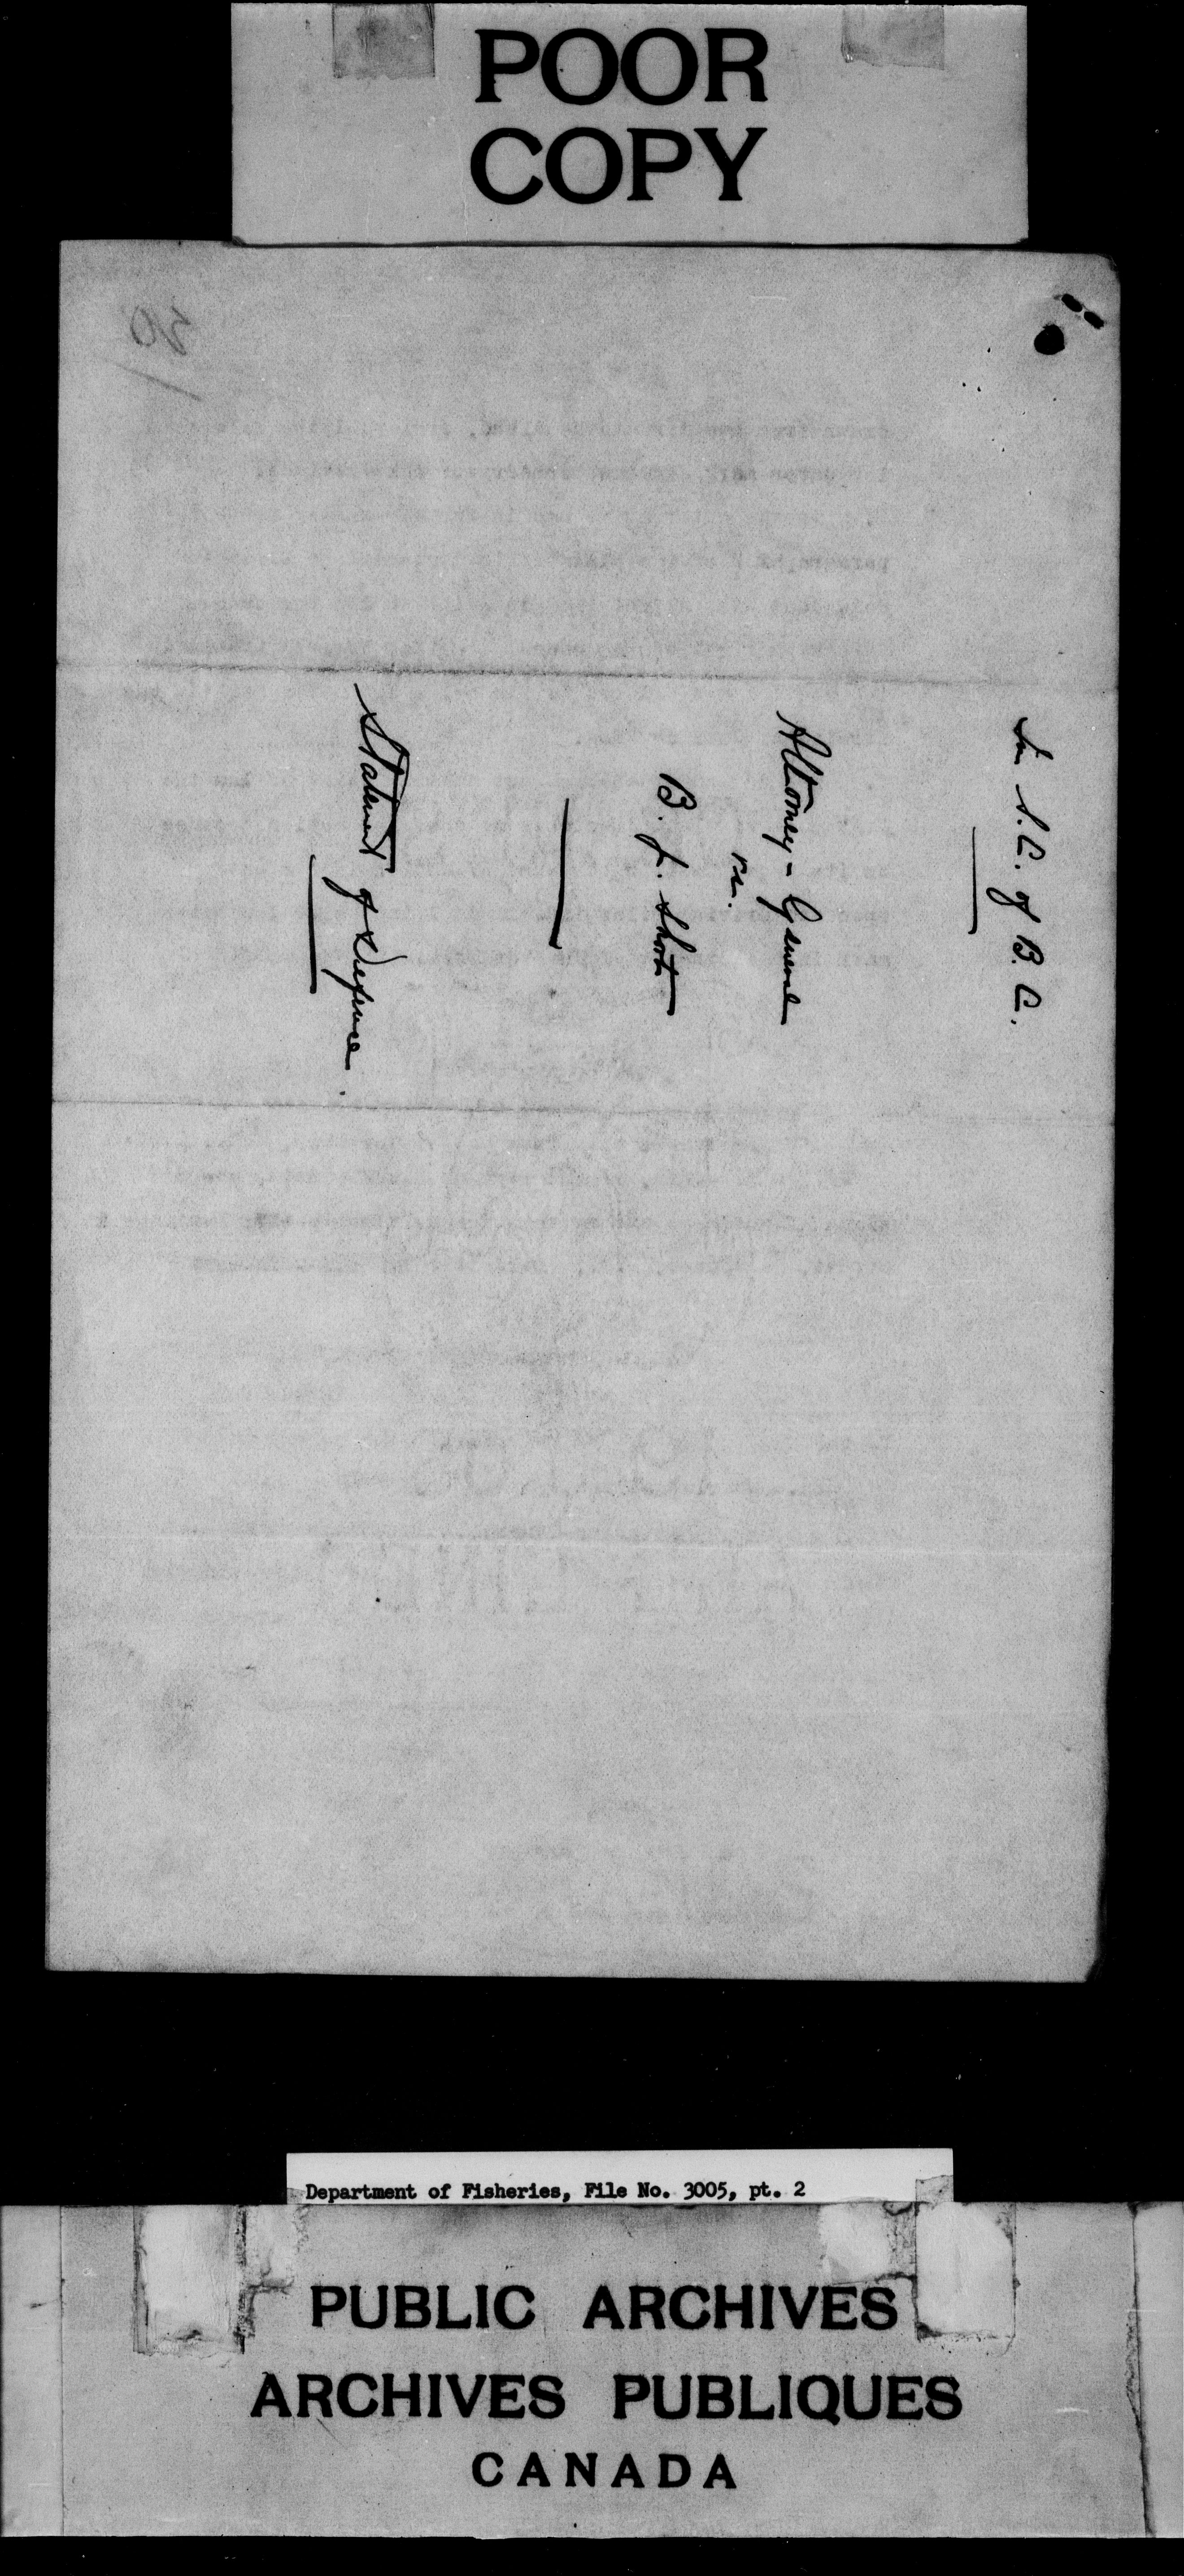 POOR
COPY
30
In S.C. of B.C.
Attorney-General
vs.
B. J. Short
Statement of Defence.
Department of Fisheries, File No. 3005, pt. 2
PUBLIC ARCHIVES
ARCHIVES PUBLIQUES
CANADA